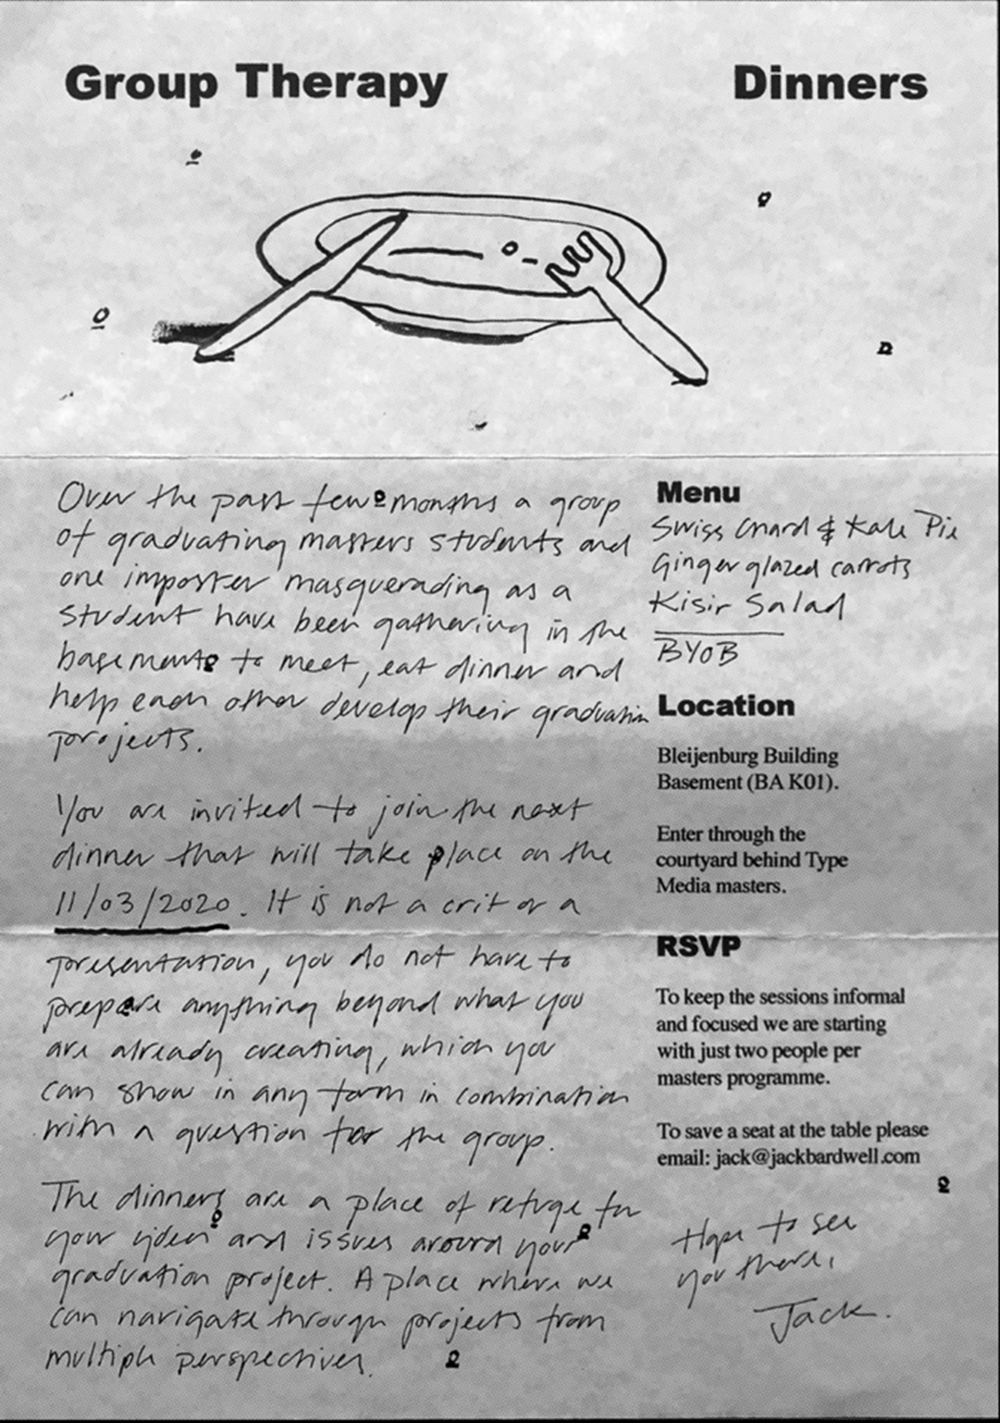 Group Therapy Dinners
Over the past few months a group
of graduating masters students and
one imposter masquerading as a
student have been gathering in the
basement to meet, eat dinner and
help each other develop their graduatin
projects.
You are invited to join the next
dinner that will take place on the
11/03/2020. It is not a crit or a
presentation, you do not have to
prepare anything beyond what you
are already creating, which you
can show in any form in combination
with a question for the group.
The dinners are a place of refuge for
your and issues around your
graduation project. A place where we
can navigate through projects from
multiple perspectives.
Menu
Swiss Chard & Kale Pie
Ginger glazed carrots
Kisir Salad
BYOB
Location
Bleijenburg Building
Basement (BA K01).
Enter through the
courtyard behind Type
Media masters.
RSVP
To keep the sessions informal
and focused we are starting
with just two people per
masters programme.
To save a seat at the table please
email: jack@jackbardwell.com
Hope to see
you there,
Jack.